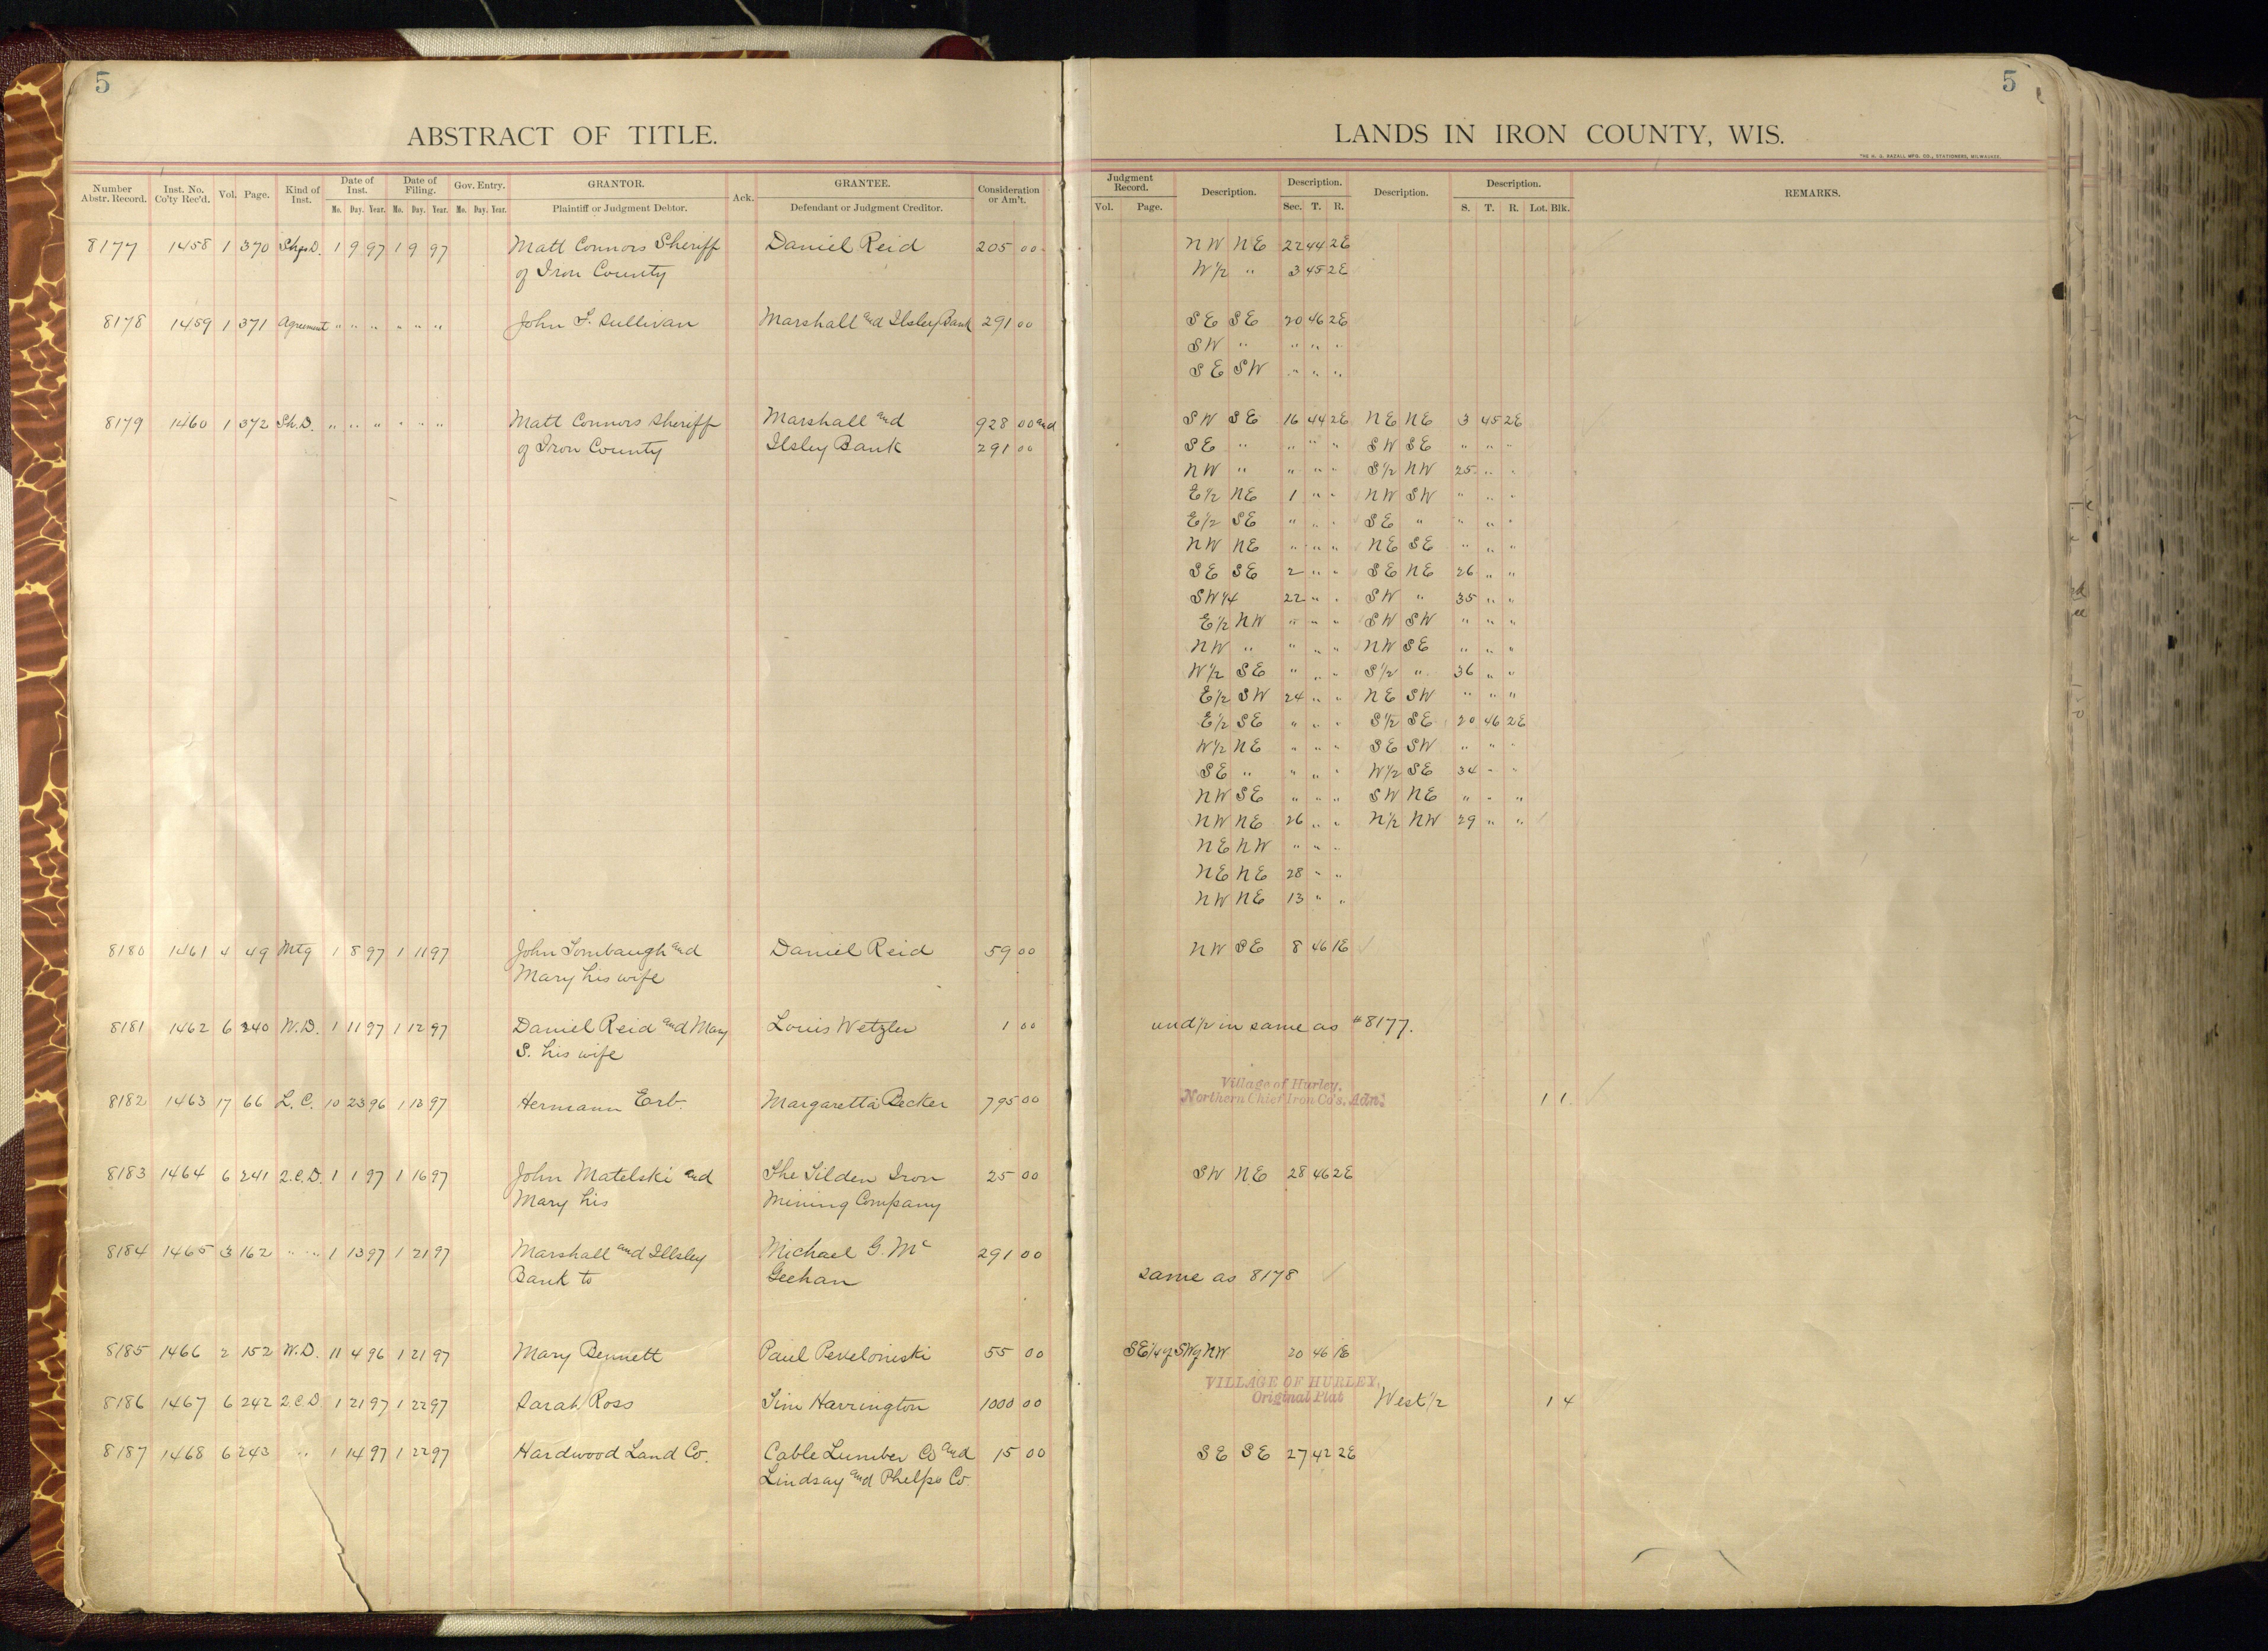 5
5
ABSTRACT OF TITLE.
LANDS IN IRON COUNTY, WIS.
THE H. G. RAZALL MFG. CO., STATIONERS, MILWAUKEE.
Number Abstr. Record. Inst. No. Co'ty Rec'd. Vol. Page. Kind of Inst. Date of Inst. Mo. Day. Year. Date of Filing. Mo. Day. Year. Gov. Entry. Mo. Day. Year. GRANTOR. Plaintiff or Judgment Debtor. Ack. GRANTEE. Defendant or Judgment Creditor. Consideration or Am't.
Judgment Record. Vol. Page. Description. Description. Sec. T. R. Description. Description. S. T. R. Lot. Blk. REMARKS.
8177 1458 1 370 1 9 97 1 9 97 Matt Connors Sheriff Daniel Reid 205 00 NW NE 22 44 2E
of Iron County W½ " 3 45 2E
8178 1459 1 371 Agreement " " " " " " John F. Sullivan Marshall and Ilsley Bank 291 00 SE SE 20 46 2E
SW " " " "
SE SW " " "
8179 1460 1 372 Sh.D. " " " " " " Matt Connors Sheriff Marshall and 928 00 and SW SE 16 44 2E NE NE 3 45 2E
of Iron County Ilsley Bank 291 00 SE " " " " SW SE " " "
NW " " " " S½ NW 25 " "
E½ NE 1 " " NW SW " " "
E½ SE " " " SE " " " "
NW NE " " " NE SE " " "
SE SE 2 " " SE NE 26 " "
SW¼ 22 " " SW " 35 " "
E½ NW " " " SW SW " " "
NW " " " " NW SE " " "
W½ SE " " " S½ " 36 " "
E½ SW 24 " " NE SW " " "
E½ SE " " " S½ SE 20 46 2E
W½ NE " " " SE SW " " "
SE " " " " W½ SE 34 " "
NW SE " " " SW NE " " "
NW NE 26 " " N½ NW 29 " "
NE NW " " "
NE NE 28 " "
NW NE 13 " "
8180 1461 4 49 Mtg 1 8 97 1 11 97 John Tombaugh and Daniel Reid 59 00 NW SE 8 46 1E
Mary his wife
8181 1462 6 240 W.D. 1 11 97 1 12 97 Daniel Reid and Mary Louis Wetzler 1 00 und½ in same as #8177.
S. his wife
Village of Hurley,
8182 1463 17 66 L.C. 10 23 96 1 13 97 Hermann Erb. Margaretta Becker 795 00 Northern Chief Iron Co's. Adn. 1 1
8183 1464 6 241 2.C.D. 1 1 97 1 16 97 John Matelski and The Tilden Iron 25 00 SW NE 28 46 2E
Mary his Mining Company
8184 1465 3 162 " " 1 13 97 1 21 97 Marshall and Illsley Michael G. Mc 291 00
Bank to Geehan same as 8178
8185 1466 2 152 W.D. 11 4 96 1 21 97 Mary Bennett Paul 55 00 SE¼ of SW of NW 20 46 1E
VILLAGE OF HURLEY,
8186 1467 6 242 2.C.D 1 21 97 1 22 97 Sarah Ross Tim Harrington 1000 00 Original Plat West½ 1 4
8187 1468 6 243 " 1 14 97 1 22 97 Hardwood Land Co. Cable Lumber Co and 15 00 SE SE 27 42 2E
Lindsay and Phelps Co.